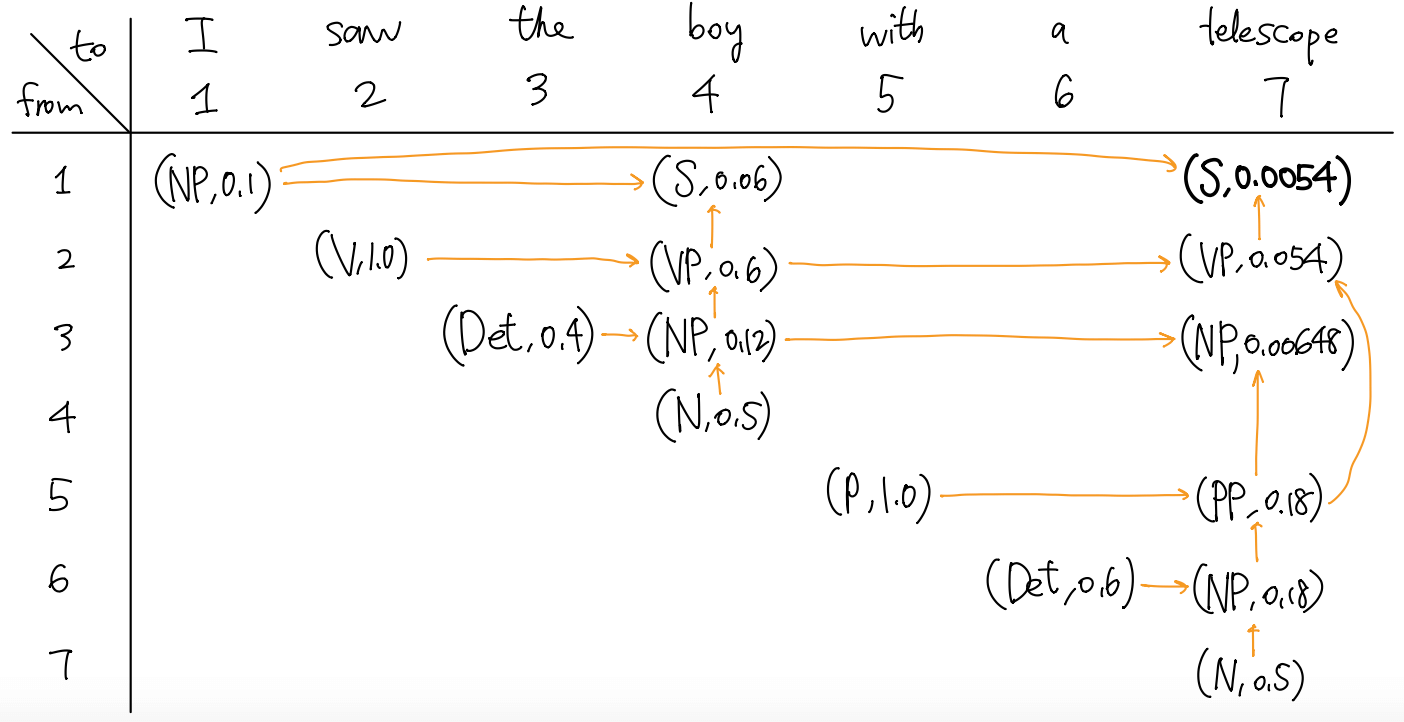 to I saw the boy with a telescope
from 1 2 3 4 5 6 7
1 (NP,0.1) (S,0.06) (S,0.0054)
2 (V,1.0) (VP,0.6) (VP,0.054)
3 (Det,0.4) (NP,0.12) (NP,0.00648)
4 (N,0.5)
5 (P,1.0) (PP,0.18)
6 (Det,0.6) (NP,0.18)
7 (N,0.5)